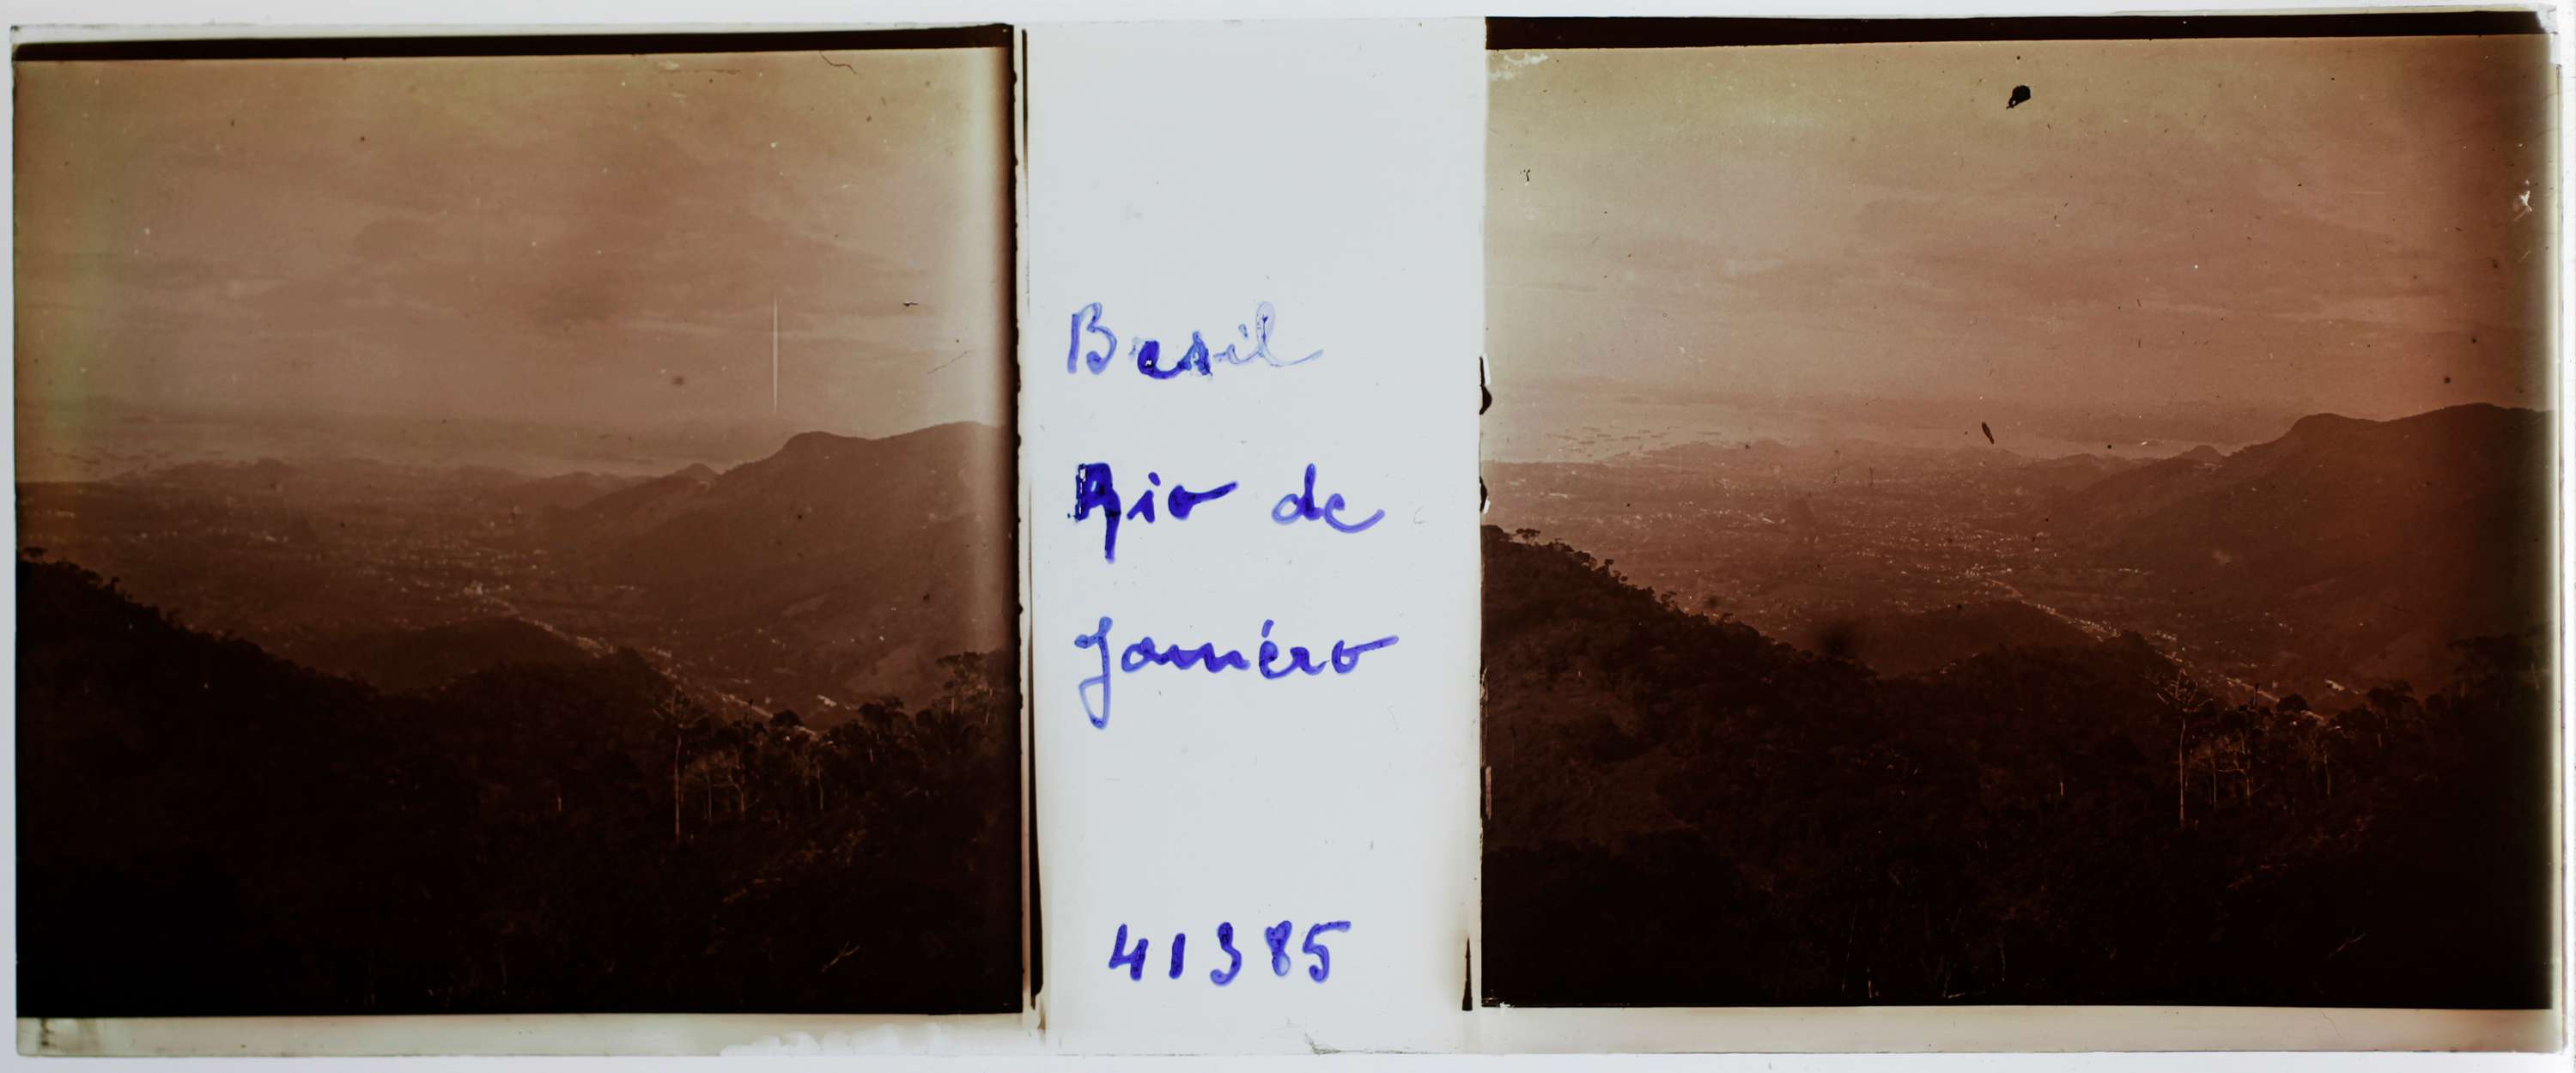 Bresil
Rio de
Janiéro
41385